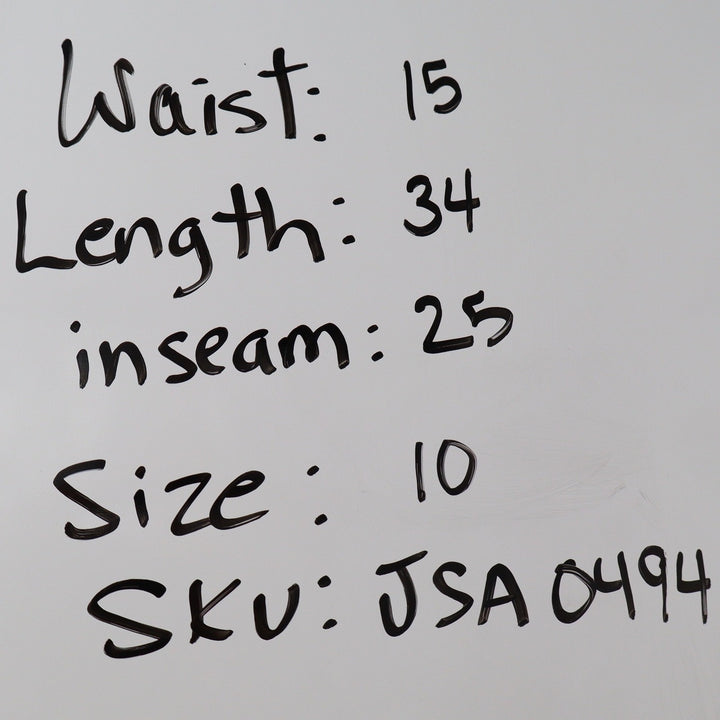 Waist: 15
Length: 34
inseam: 25
Size: 10
SKU: JSA0494